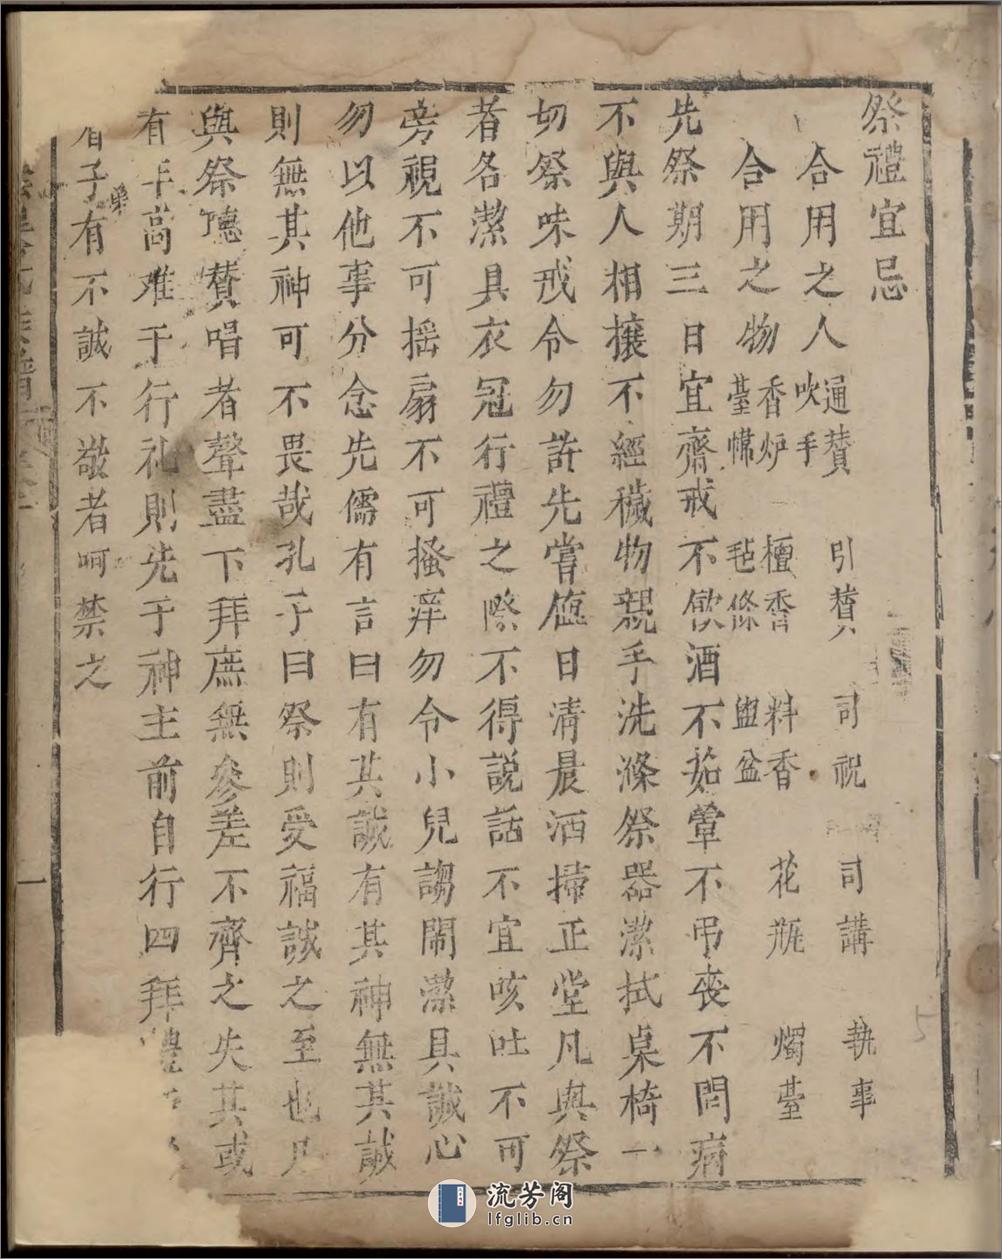 祭禮宜忌
合用之人 通贊 引贊 司祝 司講 執事 吹手
合用之物 香炉 檀香 料香 花瓶 燭臺 臺幃 毡條 盥盆
先祭期三日宜齋戒不飲酒不茹葷不弔喪不問病
不與人相攘不經穢物親手洗滌祭器潔拭桌椅一
切祭味戒令勿許先嘗值日清晨洒掃正堂凡與祭
者各潔具衣冠行禮之際不得説話不宜咳吐不可
旁視不可摇扇不可搔痒勿令小兒謅鬧潔具誠心
勿以他事分念先儒有言曰有其誠有其神無其誠
則無其神可不畏哉孔子曰祭則受福誠之至也凡
與祭聽贊唱者聲盡下拜庶無參差不齊之失其或
有年高难于行礼則先于神主前自行四拜禮
子弟有不誠不敬者呵禁之
一
5
流芳阁
lfglib.cn